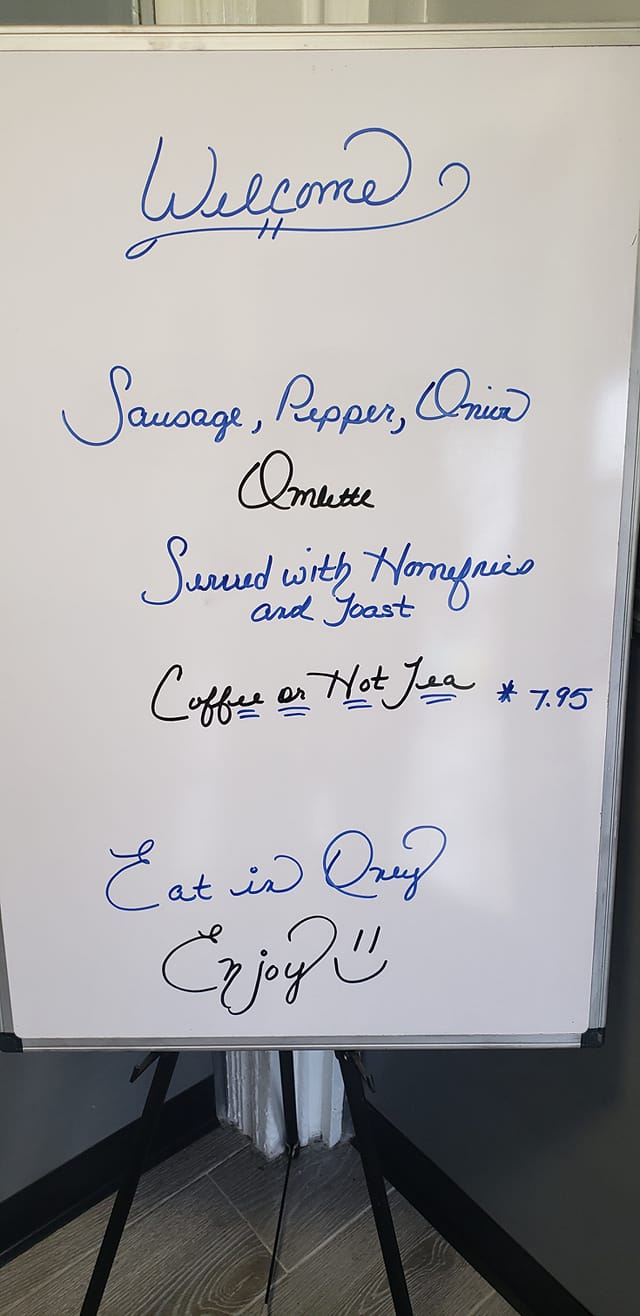 Welcome
Sausage, Pepper, Onion
Omlette
Served with Homefries
and Toast
Coffee or Hot Tea * 7.95
Eat in Only
Enjoy